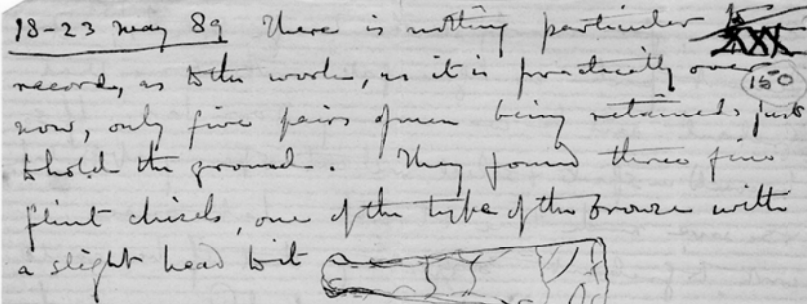 18-23 May 89 There is nothing particular to
XXX
record, as to the work, as it is practically over
150
now, only five pairs of men being retained just
to hold the ground. They found three fine
flint chisels, one of the type of the bronze with
a slight head to it